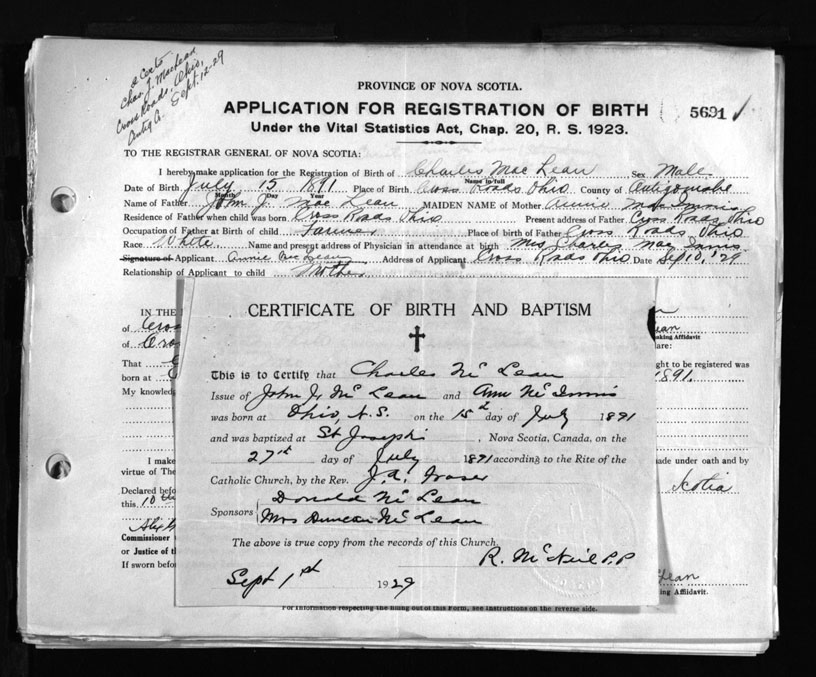 2 certs
Chas. J. MacLean
Cross Roads, Ohio,
Antig Co.
Sept. 12-29
PROVINCE OF NOVA SCOTIA.
APPLICATION FOR REGISTRATION OF BIRTH
5691
Under the Vital Statistics Act, Chap. 20, R. S. 1923.
TO THE REGISTRAR GENERAL OF NOVA SCOTIA:
I hereby make application for the Registration of Birth of Charles Mac Lean Sex Male
Name in full
Date of Birth July 15 1891 Place of Birth Cross Roads Ohio County of Antigonishe
Month Day Year
Name of Father John J. Mac Lean MAIDEN NAME of Mother Annie Mac Innis
Residence of Father when child was born Cross Roads Ohio Present address of Father Cross Roads Ohio
Occupation of Father at Birth of child Farmer Place of birth of Father Cross Roads Ohio
Race White Name and present address of Physician in attendance at birth Mrs Charles Mac Innis
Signature of Applicant Annie Mc Lean Address of Applicant Cross Roads Ohio Date Sep 10, '29
Relationship of Applicant to child Mother
IN THE
of Cros
of Cro
That
born at
My knowled
lean
aking Affidavit
are:
ght to be registered was
1891.
CERTIFICATE OF BIRTH AND BAPTISM
This is to Certify that Charles Mc Lean
Issue of John J. Mc Lean and Ann Mc Innis
was born at Ohio, N.S. on the 15th day of July 1891
and was baptized at St Joseph's, Nova Scotia, Canada, on the
27th day of July 1891 according to the Rite of the
Catholic Church, by the Rev. J.A. Fraser
Sponsors Donald Mc Lean
Mrs Duncan Mc Lean
The above is true copy from the records of this Church.
R. McNeil P.P
Sept 1st 1929
I make
virtue of The
Declared befo
this 10th
Alex
Commissioner
or Justice of th
If sworn befo
ade under oath and by
Scotia
Lean
ing Affidavit.
For information respecting the filling out of this Form, see instructions on the reverse side.